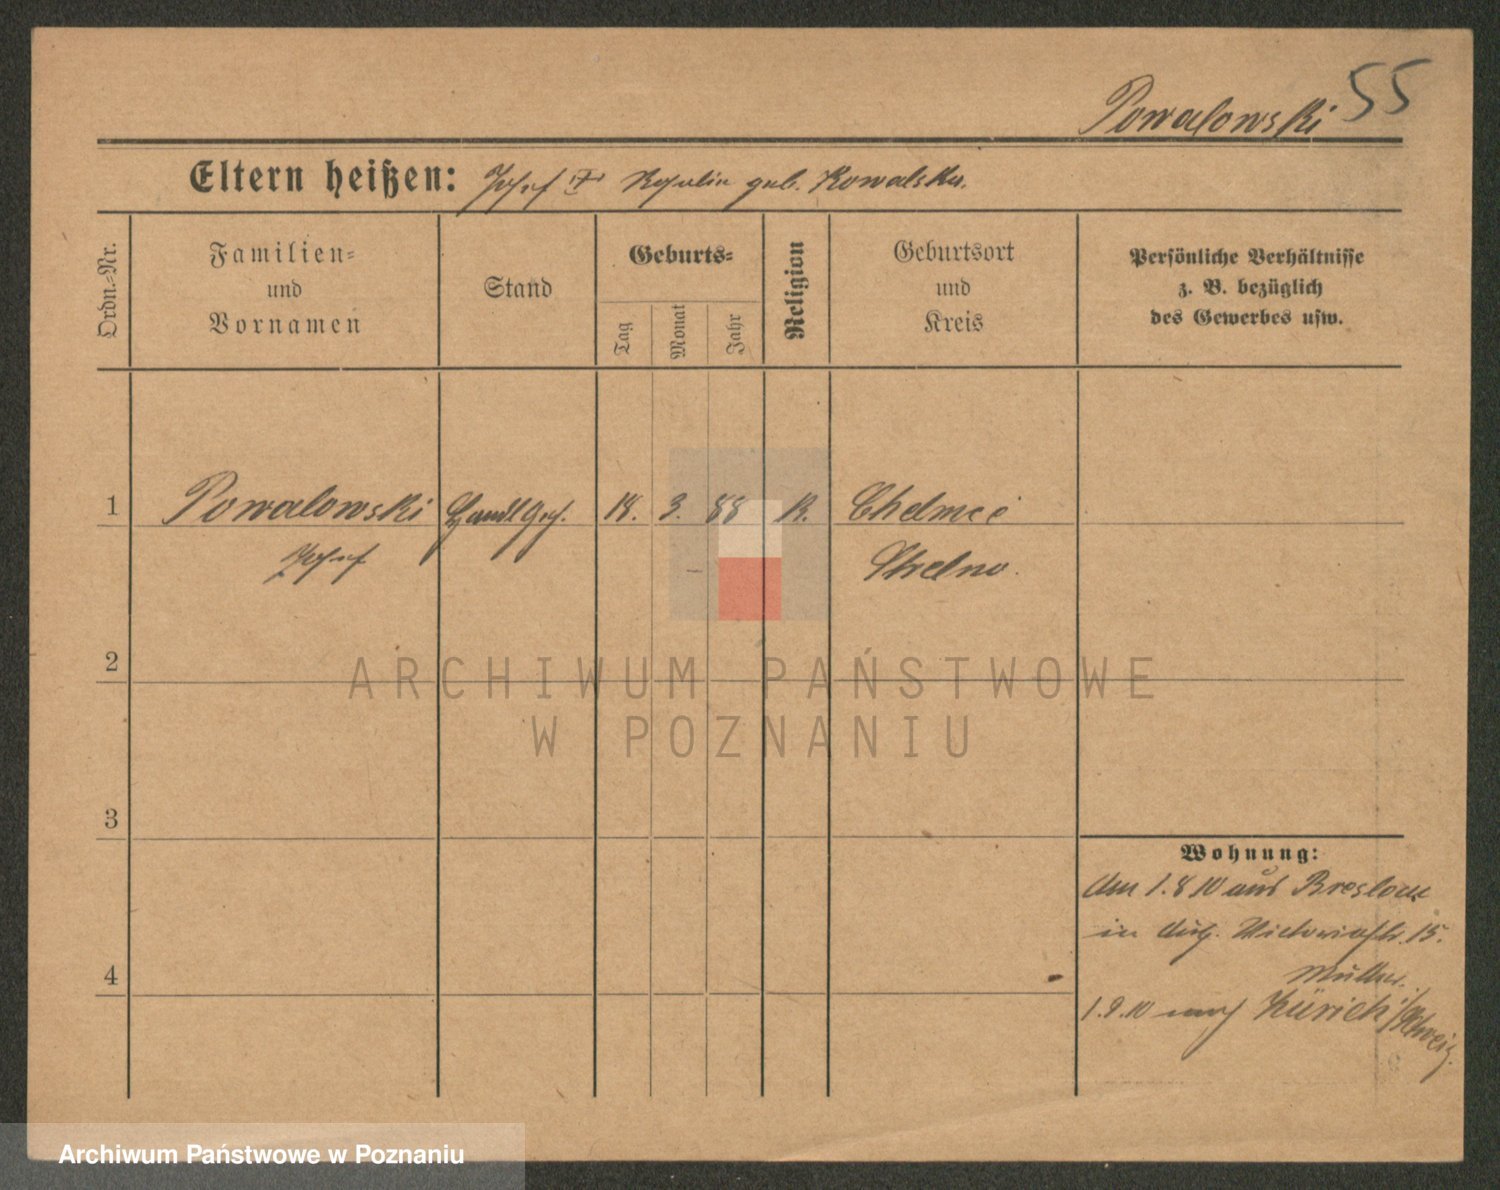 55
Powalowski
Eltern heißen: Josef Rosalie geb. Kowalska.
Ordn.-Nr.
Familien-
und
Vornamen
Stand
Geburts-
Tag
Monat
Jahr
Religion
Geburtsort
und
Kreis
Persönliche Verhältnisse
z. B. bezüglich
des Gewerbes usw.
1 Powalowski Handl Geh. 18. 3. 88 K. Chelmce
Josef Strelno.
2
ARCHIWUM PAŃSTWOWE
W POZNANIU
3
Wohnung:
Am 1.8 10 aus Breslau
in Victoriastr. 15.
4
1.9.10 nach Zürich/Schweiz.
Archiwum Państwowe w Poznaniu